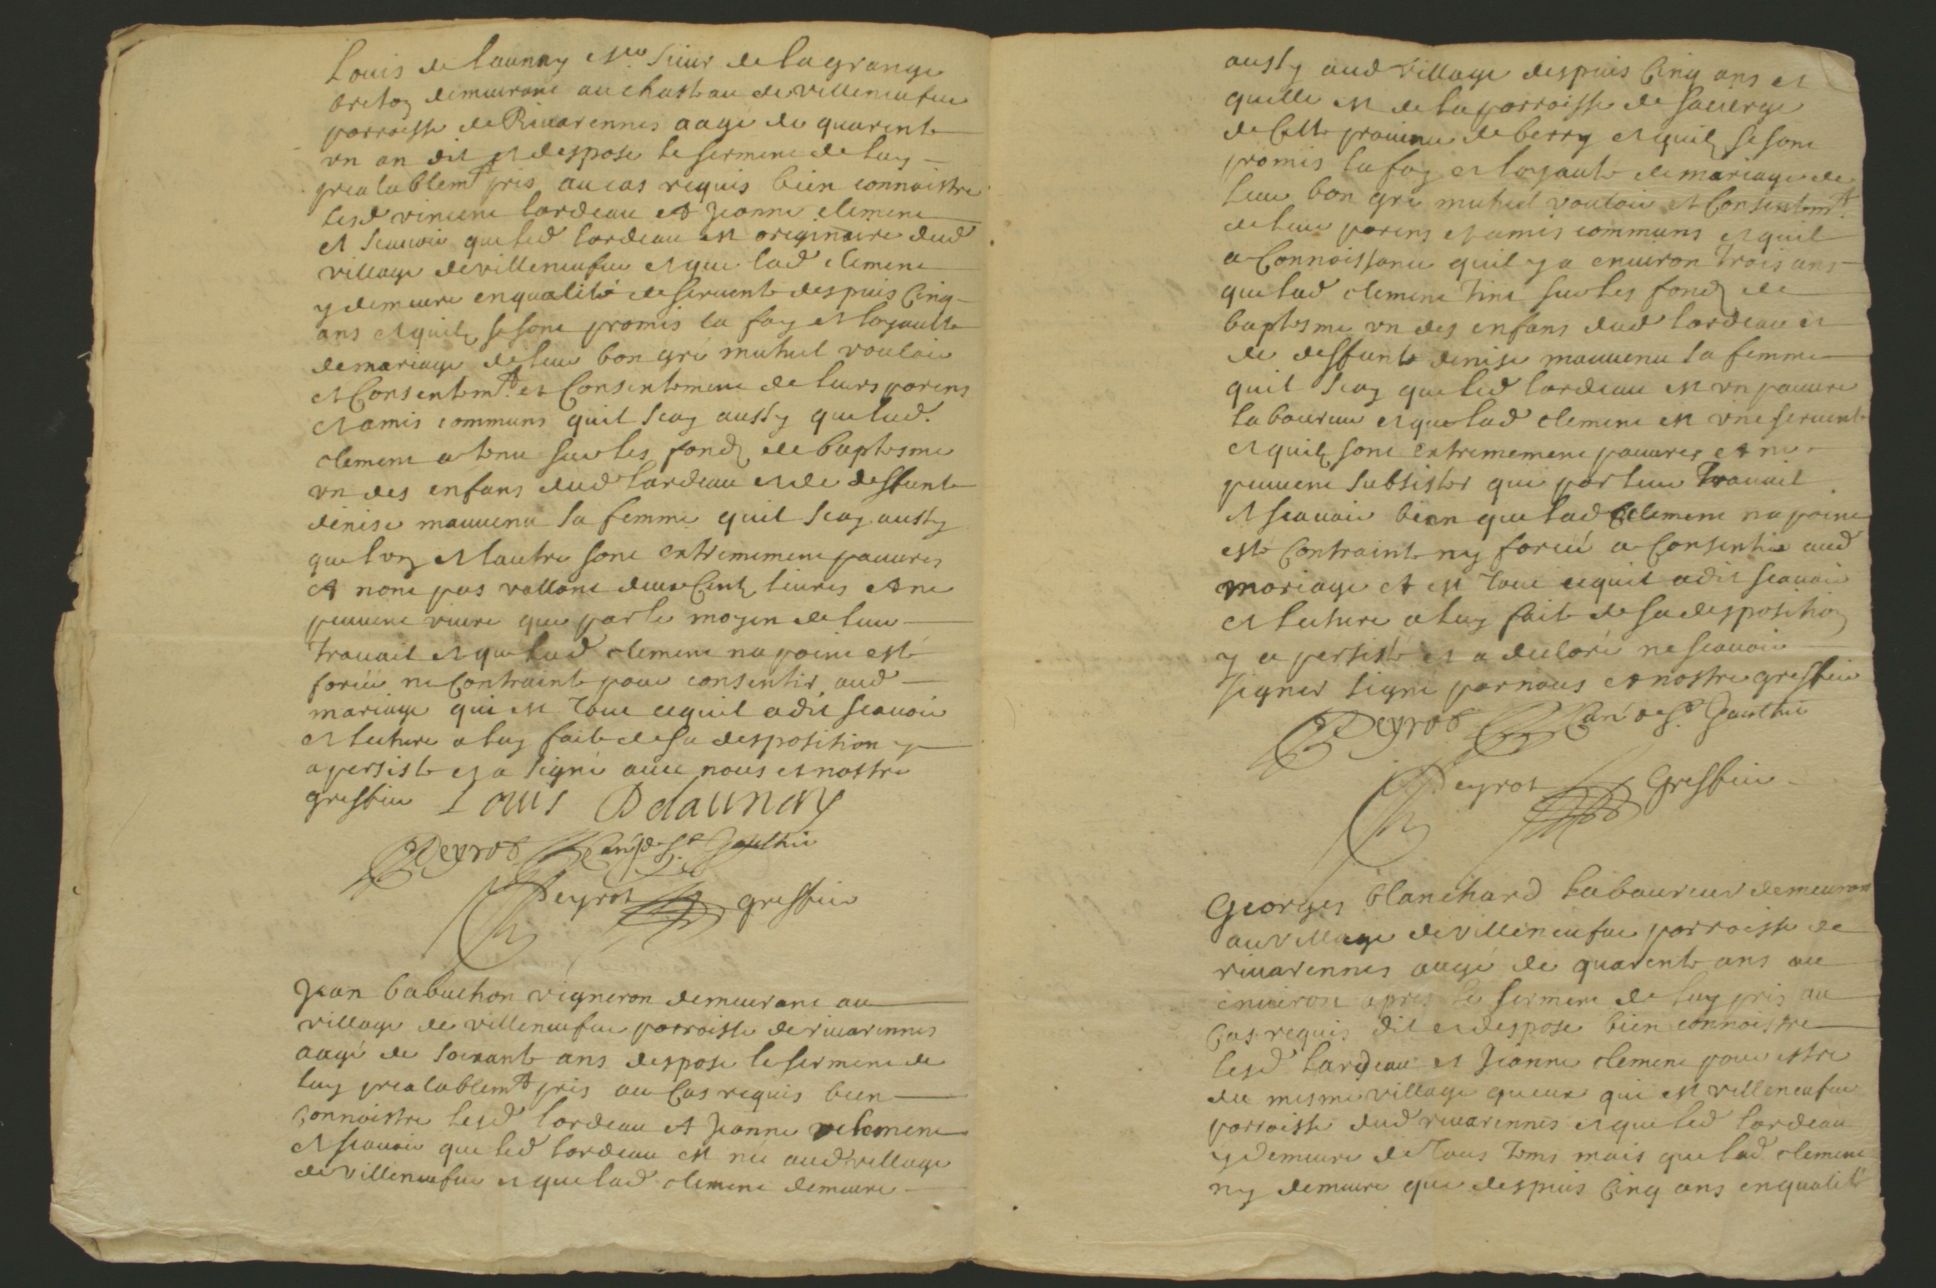 Louis de launay esc.r sieur de la grange
breton demeurant au chasteau de villeneufue
parroisse de Riuarennes aagé de quarente
vn an dit et depose le serment de luy
prealablem.t pris au cas requis bien connoistre
lesd vincent lardeau et Jeanne clement
et scauoir que led lardeau est originaire dud
village de villeneufue et que lad clement
y demeure en qualité de seruente despuis Cinq
ans et quilz se sont promis la foy et loyaulté
de mariage de leur bon gré mutuel vouloir
et Consentem.t et Consentement de leurs parens
et amis communs quil scay aussy que lad.
clement a tenu sur les fondz de baptesme
vn des enfans dud lardeau et de deffunte
denise mauuenu sa femme quil scay aussy
que lvn et lautre sont extremement pauures
et nont pas vallant deux Centz liures et ne
peuuent viure que par le moyen de leur
trauail et que lad clement na point esté
forcée ne Contrainte pour consentir aud
mariage qui est tout ce quil a dit scauoir
et lecture a luy faite de sa desposition y
a persisté et a signé auec nous et nostre
greffier Louis Delaunay
Peyrot Curé de S.t Gaulthier
Peyrot greffier
Jean babuchon vigneron demeurant au
village de villeneufue parroisse de riuarennes
aagé de soixante ans despose le serment de
luy prealablem.t pris au Cas requis bien
connoistre lesd lardeau et Jeanne clement
et scauoir que led lardeau est né aud village
de villeneufue et que lad clement demeure
aussy aud village despuis Cinq ans et
quelle est de la parroisse de sacierge
de Cette prouince de berry et quilz se sont
promis la foy et loyauté de mariage de
leur bon gré mutuel vouloir et Consentem.t
de leur parens et amis communs et quil
a Connoissance quil y a enuiron trois ans
que lad clement tint sur les fondz de
baptesme vn des enfans dud lardeau et
de deffunte denise mauuenu sa femme
quil scay que led lardeau est vn pauure
laboureur et que lad clement est vne seruente
et quilz sont extremement pauures et ne
peuuent subsister que par leur trauail
et scauoir bien que lad Clement na point
esté Contrainte ny forcée a Consentir aud
mariage et est tout ce quil a dit scauoir
et lecture a luy fait de sa desposition
y a persisté et a declaré ne scauoir
signer signé par nous et nostre greffier
Peyrot Curé de S.t Gaulthier
Peyrot Greffier
Georges blanchard laboureur demeurant
au village de villeneufue parroisse de
riuarennes aagé de quarente ans ou
enuiron apres le serment de luy pris au
Cas requis dit et despose bien connoistre
lesd lardeau et Jeanne clement pour estre
du mesme village queux qui est villeneufue
parroisse dud riuarennes et que led lardeau
y demeure de tous tems mais que lad clement
ny demeure que despuis Cinq ans en qualité